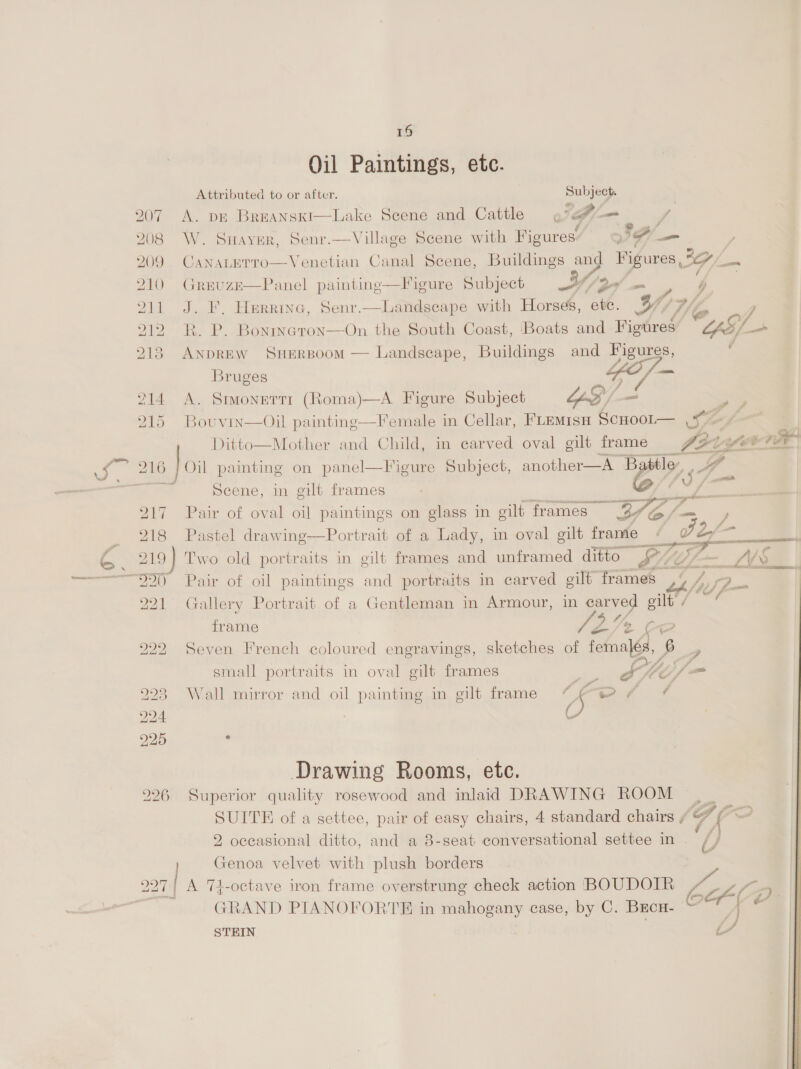 16
Oil Paintings, etc.
Attributed to or after. Subject.
207 A. DE BREANSKI—Lake Scene and Cattle
208 W. SHAYER, Senr.—Village Scene with Figures
209 CANALETTO—Venetian Canal Scene, Buildings and Figures
210 GREUZE—Panel painting—Figure Subject
211 J. F. HERRING, Senr.—Landscape with Horses, etc.
212 R. P. BONINGTON—On the South Coast, Boats and Figures
213 ANDREW SHERBOOM — Landscape, Buildings and Figures,
Bruges
214 A. SIMONETTI (Roma)—A Figure Subject
215 BOUVIN—Oil painting—Female in Cellar, FLEMISH SCHOOL—
Ditto—Mother and Child, in carved oval gilt frame
216 Oil painting on panel—Figure Subject, another—A Battle
Scene, in gilt frames
217 Pair of oval oil paintings on glass in gilt frames
218 Pastel drawing—Portrait of a Lady, in oval gilt frame
219 Two old portraits in gilt frames and unframed ditto
220 Pair of oil paintings and portraits in carved gilt frames
221 Gallery Portrait of a Gentleman in Armour, in carved gilt
frame
222 Seven French coloured engravings, sketches of females, 6
small portraits in oval gilt frames
223 Wall mirror and oil painting in gilt frame
224
225
Drawing Rooms, etc.
226 Superior quality rosewood and inlaid DRAWING ROOM
SUITE of a settee, pair of easy chairs, 4 standard chairs
2 occasional ditto, and a 3-seat conversational settee in
Genoa velvet with plush borders
227 A 7¼-octave iron frame overstrung check action BOUDOIR
GRAND PIANOFORTE in mahogany case, by C. BECH-
STEIN